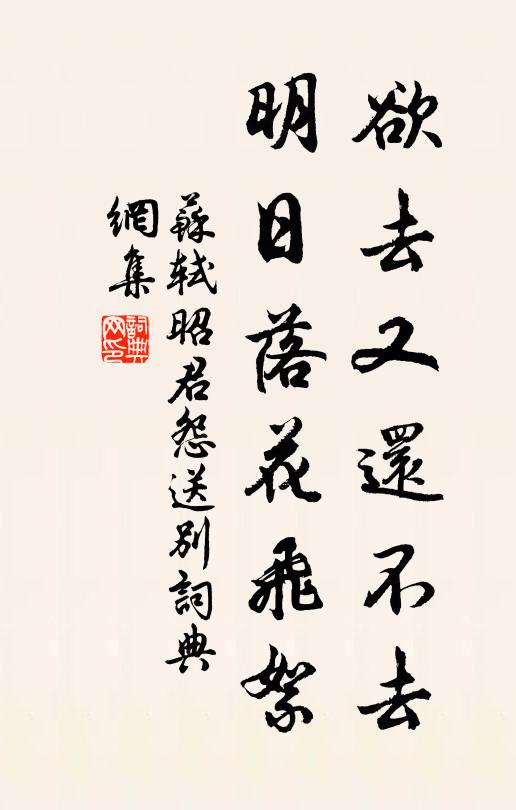 欲去又還不去
明日落花飛絮
蘇軾昭君怨送別詞典
網集
詞典
網印